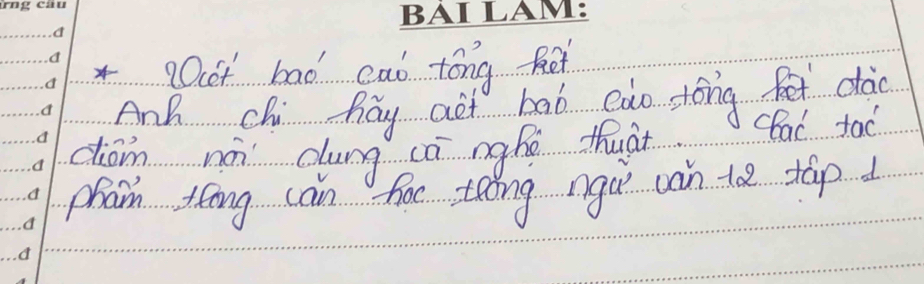 ứng câu
BÀI LÀM:
* Viết baó caó tổng kết
Anh chị hãy viết baó cáo tổng kết đặc
điểm nội dung và nghệ thuật. Các tác
phẩm trong văn học trong ngữ văn 12 tập 1